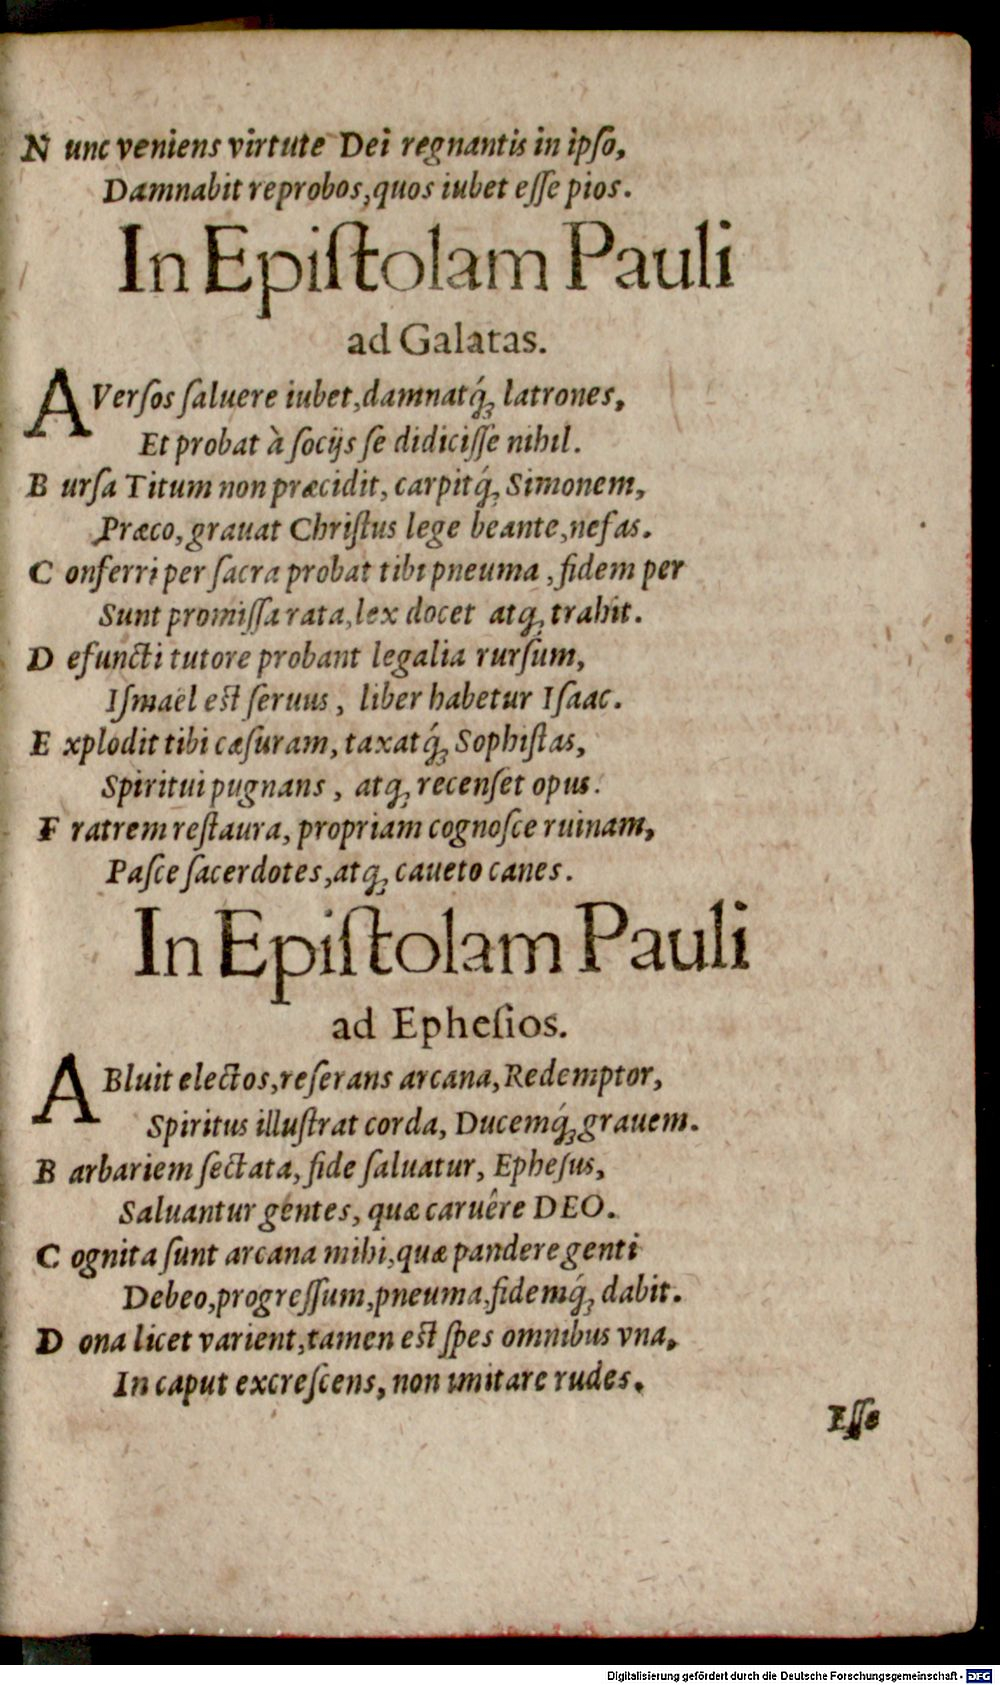 N unc veniens virtute Dei regnantis in ipſo,
Damnabit reprobos, quos iubet eſſe pios.
In Epiſtolam Pauli
ad Galatas.
AVerſos ſaluere iubet, damnatq́ꝫ latrones,
Et probat à ſocijs ſe didiciſſe nihil.
B urſa Titum non præcidit, carpitq́ꝫ Simonem,
Præco, grauat Chriſtus lege beante, nefas.
C onferri per ſacra probat tibi pneuma, fidem per
Sunt promiſſa rata, lex docet atqꝫ trahit.
D efuncti tutore probant legalia rurſum,
Iſmaël eſt ſeruus, liber habetur Iſaac.
E xplodit tibi cæſuram, taxatq́ꝫ Sophiſtas,
Spiritui pugnans, atqꝫ recenſet opus.
F ratrem reſtaura, propriam cognoſce ruinam,
Paſce ſacerdotes, atqꝫ caueto canes.
In Epiſtolam Pauli
ad Epheſios.
ABluit electos, reſerans arcana, Redemptor,
Spiritus illuſtrat corda, Ducemq́ꝫ grauem.
B arbariem ſectata, fide ſaluatur, Epheſus,
Saluantur gentes, quæ caruêre DEO.
C ognita ſunt arcana mihi, quæ pandere genti
Debeo, progreſſum, pneuma, fidemq́ꝫ dabit.
D ona licet varient, tamen eſt ſpes omnibus vna,
In caput excreſcens, non imitare rudes.
Eſſe
Digitalisierung gefördert durch die Deutsche Forschungsgemeinschaft - DFG